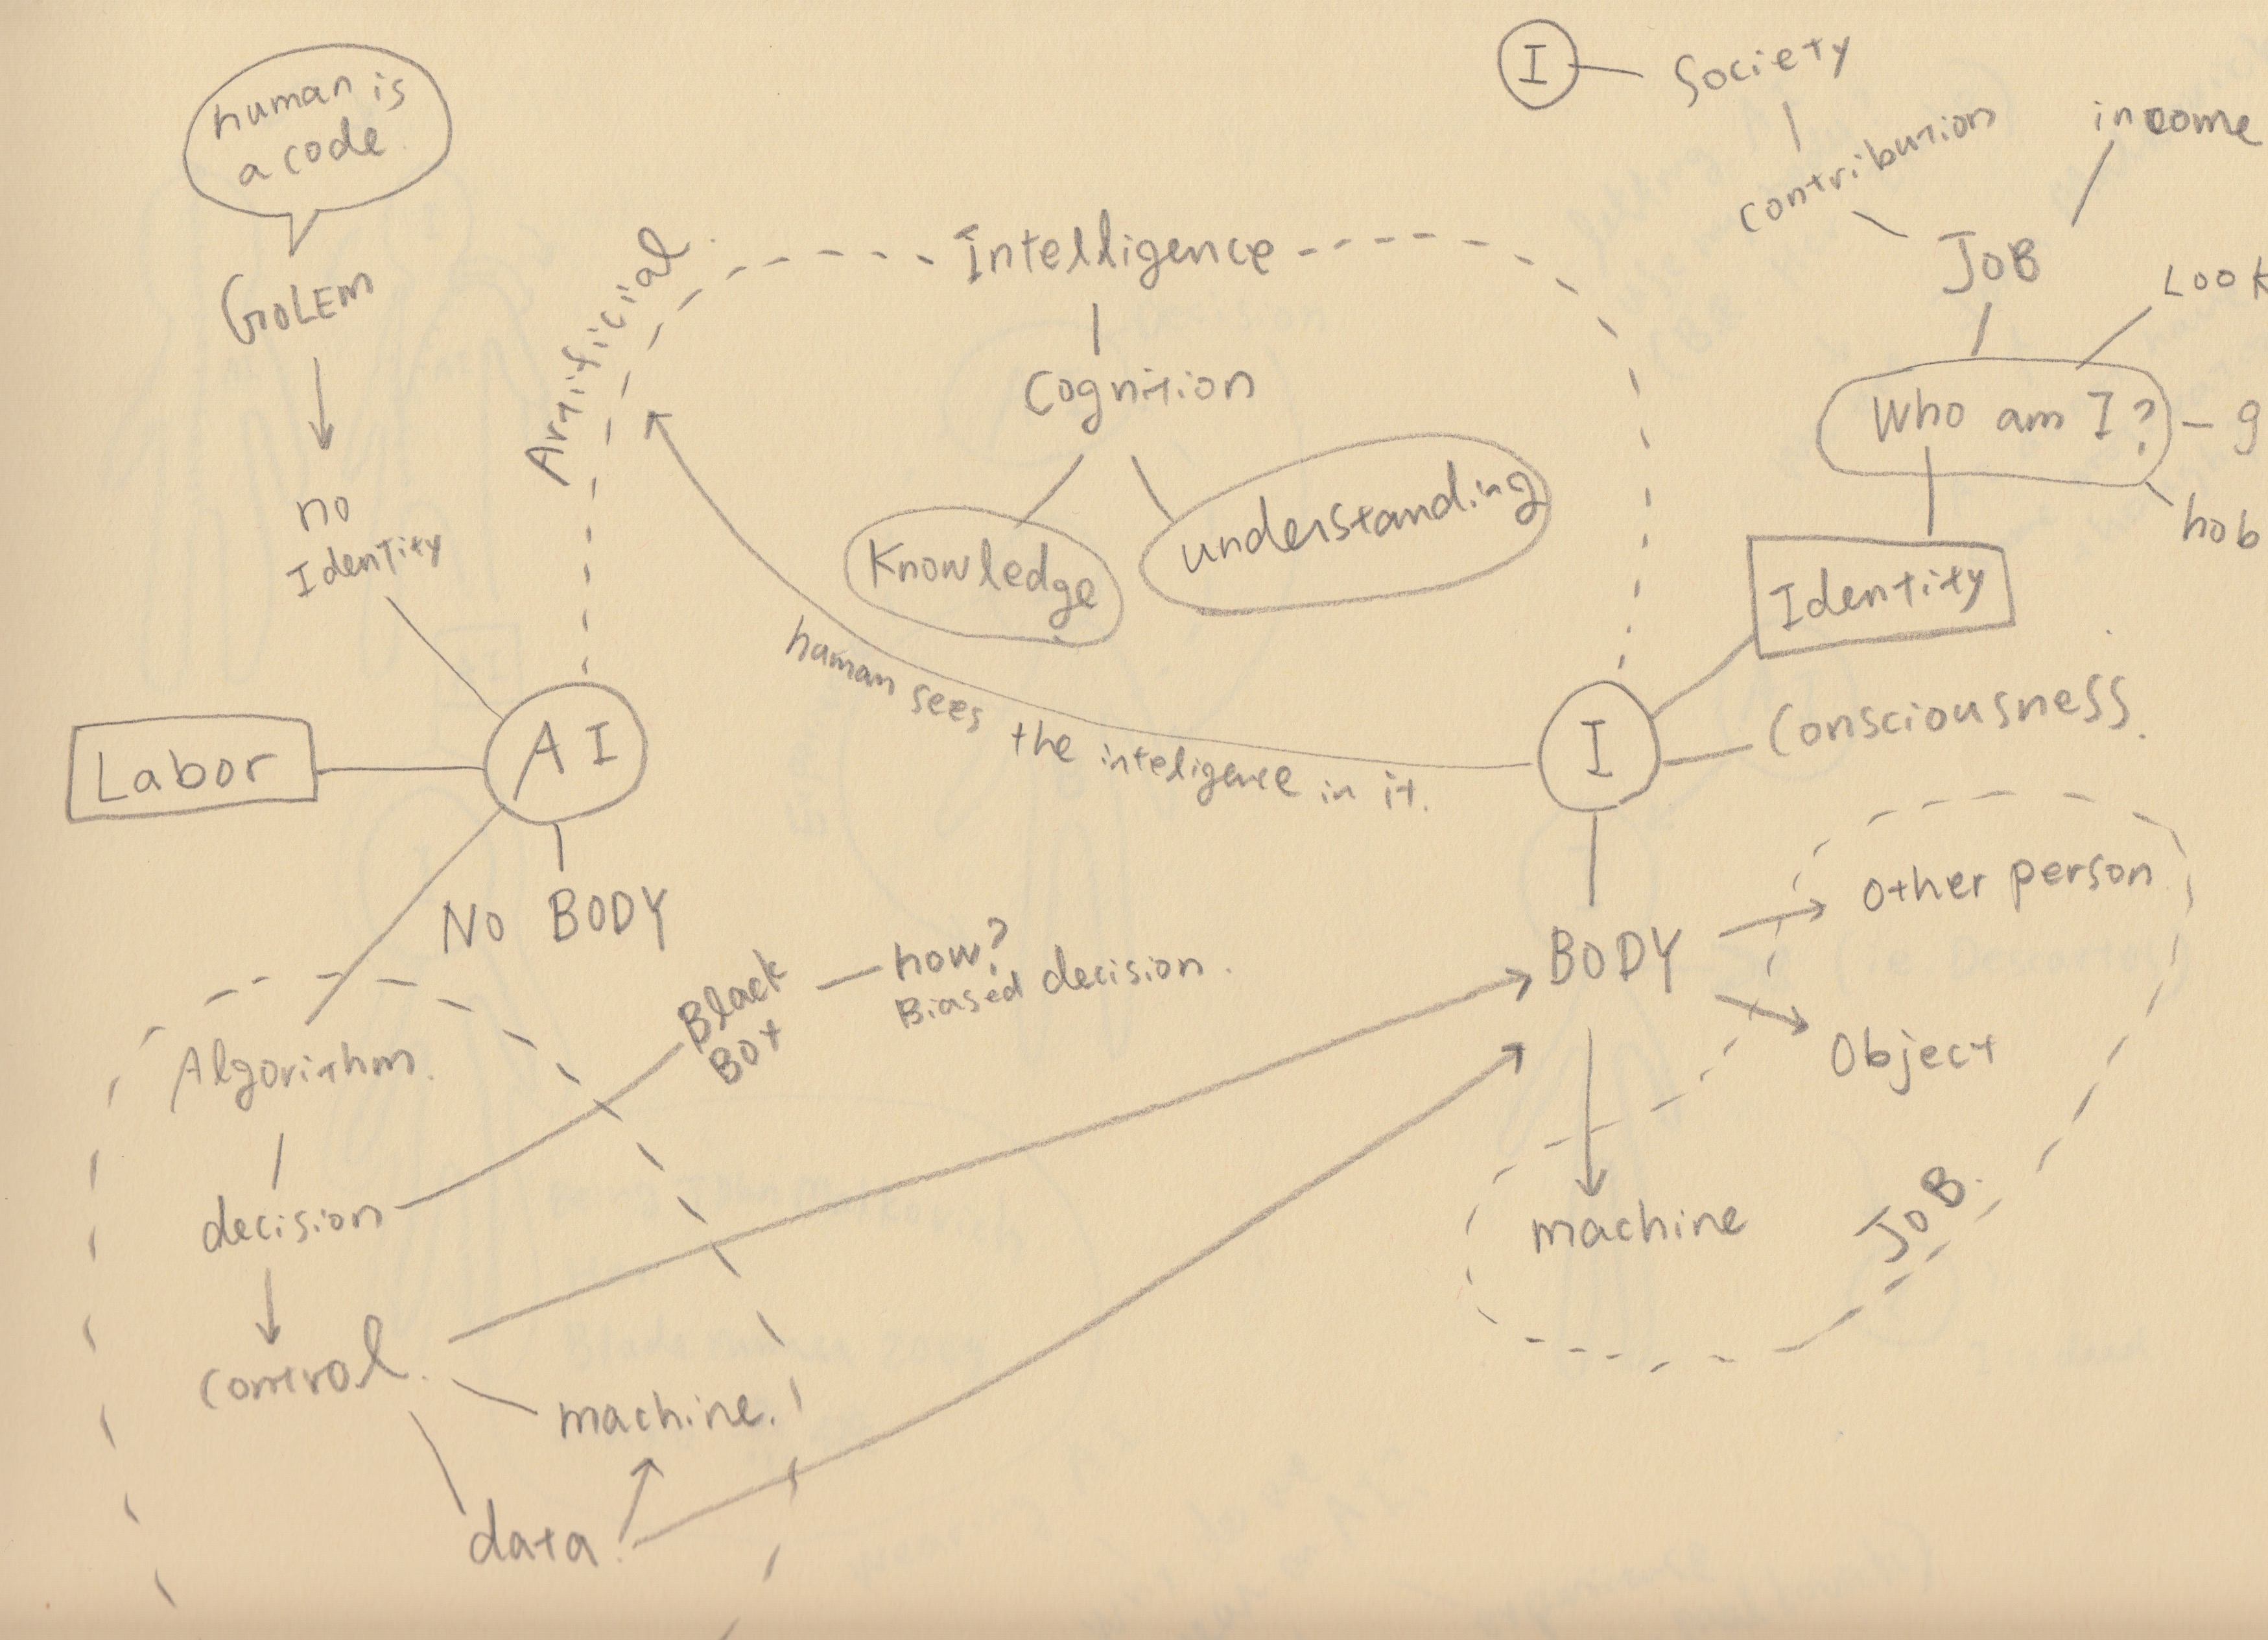 human is
a code
GOLEM
no
Identity
Labor
AI
NO BODY
Artificial
Intelligence
Cognition
Knowledge
understanding
human sees the inteligence in it.
I
Society
contribution
income
JOB
LOOK
Who am I?
g
hob
Identity
I
Consciousness.
BODY
Other person
Object
machine
JOB.
Algorithm.
decision
Black
Box
how?
Biased decision.
control.
machine.
data.